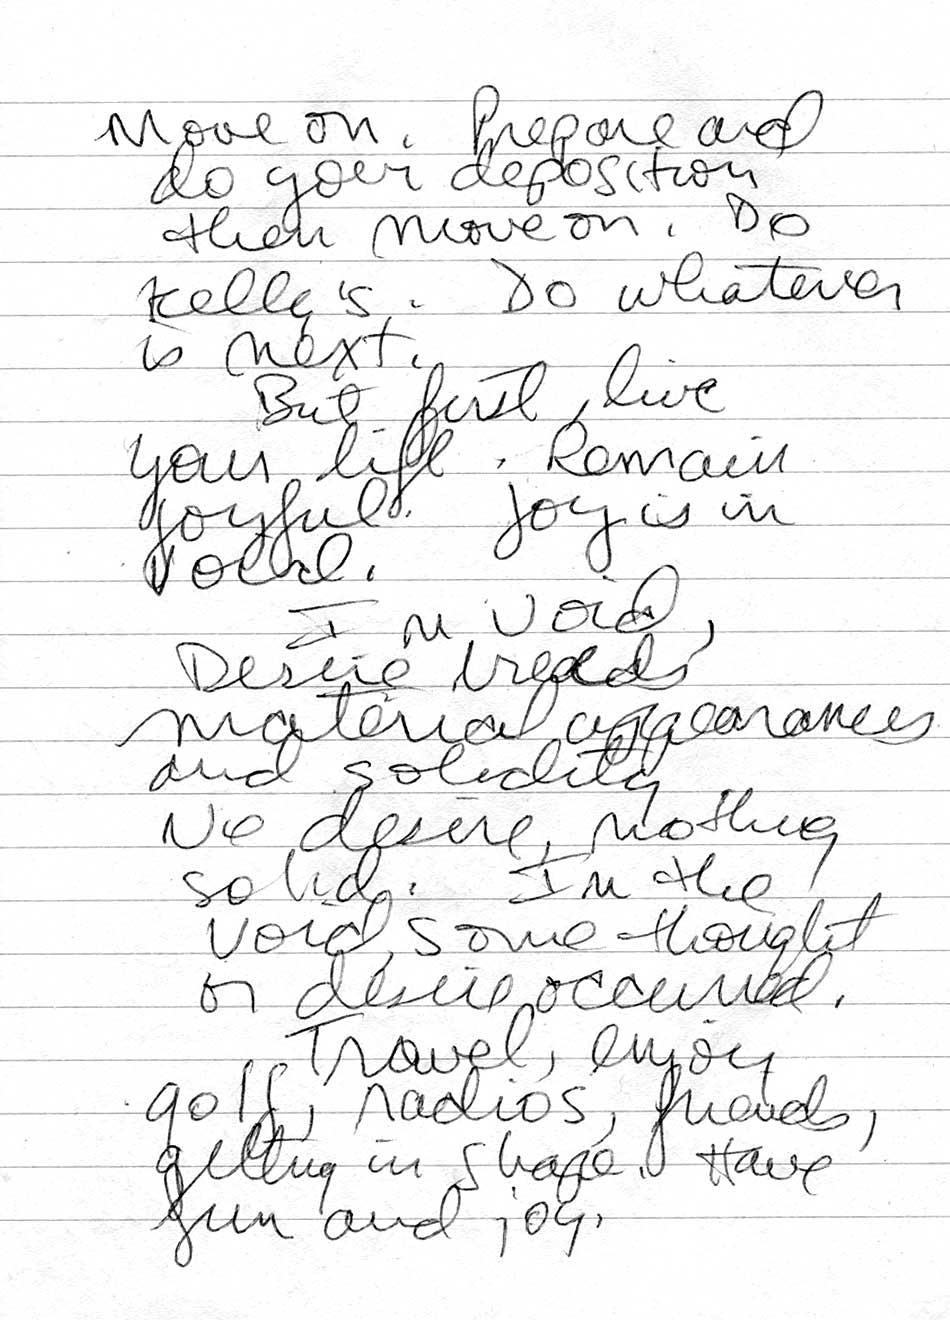 Move on. Prepare and
do your deposition
then move on. Do
Kelly's. Do whatever
is next.
But first, live
your life. Remain
joyful. Joy is in
void.
In void,
Desire breeds
material appearances
and solidity
No desire, nothing
solid. In the
void, some thought
or desire occurred.
Travel, enjoy
golf, radios, friends,
getting in shape. Have
fun and joy.